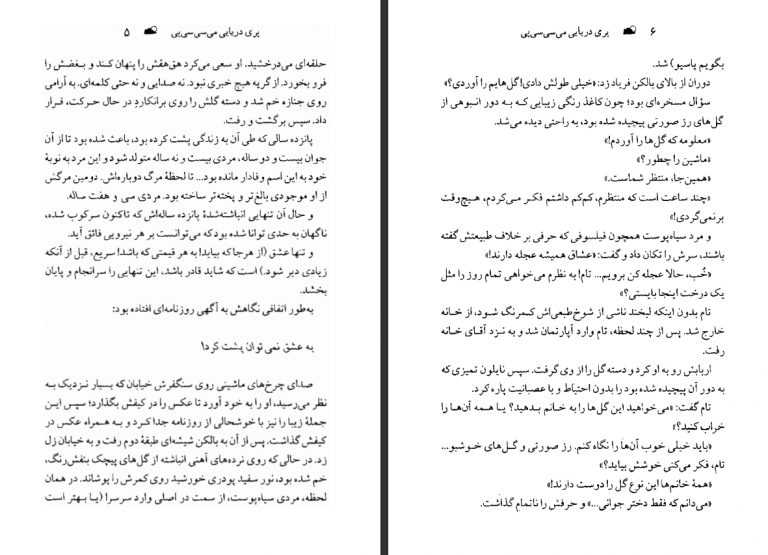 پری دریایی می‌سی‌سی‌پی ۵
حلقه‌ای می‌درخشید. او سعی می‌کرد هق‌هقش را پنهان کند و بغضش را
فرو بخورد. از گریه هیچ خبری نبود. نه صدایی و نه حتی کلمه‌ای. به آرامی
روی جنازه خم شد و دسته گلش را روی برانکاردِ در حال حرکت، قرار
داد. سپس برگشت و رفت.
پانزده سالی که طی آن به زندگی پشت کرده بود، باعث شده بود تا از آن
جوان بیست و دو ساله، مردی بیست و نه ساله متولد شود و این مرد به نوبۀ
خود به این اسم وفادار مانده بود... تا لحظۀ مرگ دوباره‌اش. دومین مرگش
از او موجودی بالغ‌تر و پخته‌تر ساخته بود. مردی سی و هفت ساله.
و حال آن تنهایی انباشته‌شدۀ پانزده ساله‌اش که تاکنون سرکوب شده،
ناگهان به حدی توانا شده بود که می‌توانست بر هر نیرویی فائق آید.
و تنها عشق (از هر جا که بیاید! به هر قیمتی که باشد! سریع، قبل از آنکه
زیادی دیر شود.) است که شاید قادر باشد، این تنهایی را سرانجام و پایان
بخشد.
به‌طور اتفاقی نگاهش به آگهی روزنامه‌ای افتاده بود:
به عشق نمی‌توان پشت کرد!
صدای چرخ‌های ماشینی روی سنگفرش خیابان که بسیار نزدیک به
نظر می‌رسید، او را به خود آورد تا عکس را در کیفش بگذارد؛ سپس این
جملۀ زیبا را نیز با خوشحالی از روزنامه جدا کرد و به همراه عکس در
کیفش گذاشت. پس از آن به بالکن شیشه‌ای طبقۀ دوم رفت و به خیابان زل
زد. در حالی که روی نرده‌های آهنی انباشته از گل‌های پیچک بنفش‌رنگ،
خم شده بود، نور سفید پودری خورشید روی کمرش را پوشاند. در همان
لحظه، مردی سیاه‌پوست، از سمت در اصلی وارد سرسرا (یا بهتر است
۶ پری دریایی می‌سی‌سی‌پی
بگویم پاسیو) شد.
دوران از بالای بالکن فریاد زد: «خیلی طولش دادی! گل‌هایم را آوردی؟»
سؤال مسخره‌ای بود؛ چون کاغذ رنگی زیبایی که به دور انبوهی از
گل‌های رز صورتی پیچیده شده بود، به راحتی دیده می‌شد.
«معلومه که گل‌ها را آوردم!»
«ماشین را چطور؟»
«همین‌جا، منتظر شماست.»
«چند ساعت است که منتظرم، کم‌کم داشتم فکر می‌کردم، هیچ‌وقت
برنمی‌گردی!»
و مرد سیاه‌پوست همچون فیلسوفی که حرفی بر خلاف طبیعتش گفته
باشند، سرش را تکان داد و گفت: «عشاق همیشه عجله دارند!»
«خُب، حالا عجله کن برویم... تام! به نظرم می‌خواهی تمام روز را مثل
یک درخت اینجا بایستی؟»
تام بدون اینکه لبخند ناشی از شوخ‌طبعی‌اش کمرنگ شود، از خانه
خارج شد. پس از چند لحظه، تام وارد آپارتمان شد و به نزد آقای خانه
رفت.
اربابش رو به او کرد و دسته گل را از وی گرفت. سپس نایلون تمیزی که
به دور آن پیچیده شده بود را بدون احتیاط و با عصبانیت پاره کرد.
تام گفت: «می‌خواهید این گل‌ها را به خانم بدهید؟ یا همه آن‌ها را
خراب کنید؟»
«باید خیلی خوب آن‌ها را نگاه کنم. رز صورتی و گل‌های خوشبو...
تام، فکر می‌کنی خوشش بیاید؟»
«همۀ خانم‌ها این نوع گل را دوست دارند!»
«می‌دانم که فقط دختر جوانی...» و حرفش را ناتمام گذاشت.